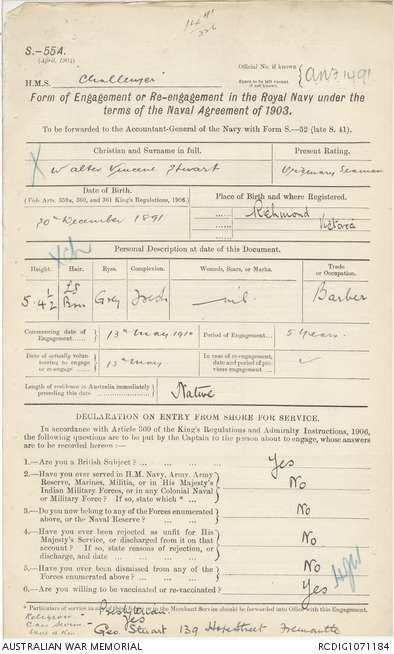 S.—55A.
(April, 1904)
H.M.S. Challenger
Official No. if known
ANF 1491
Space to be left vacant if not known.
Form of Engagement or Re-engagement in the Royal Navy under the
terms of the Naval Agreement of 1903.
To be forwarded to the Accountant-General of the Navy with Form S.—52 (late S. 41).
Christian and Surname in full.
Present Rating.
X Walter Vincent Stuart
Ordinary Seaman
Date of Birth.
(Vide Arts. 359a, 360, and 361 King's Regulations, 1906.)
Place of Birth and where Registered.
30th December 1891
Richmond
Victoria
Personal Description at date of this Document.
Height.
Hair.
Eyes.
Complexion.
Wounds, Scars, or Marks.
Trade or Occupation.
5. 4 1/2
Lt Brn
Grey
Fresh
nil
Barber
Commencing date of Engagement
13th May 1910
Period of Engagement
5 Years.
Date of actually volunteering to engage or re-engage
13th May
In case of re-engagement, date and period of previous engagement
Length of residence in Australia immediately preceding this date
Native
DECLARATION ON ENTRY FROM SHORE FOR SERVICE.
In accordance with Article 360 of the King's Regulations and Admiralty Instructions, 1906,
the following questions are to be put by the Captain to the person about to engage, whose answers
are to be recorded hereon :—
1.—Are you a British Subject? Yes
2.—Have you ever served in H.M. Navy, Army, Army
Reserve, Marines, Militia, or in His Majesty's
Indian Military Forces, or in any Colonial Naval
or Military Force? If so, state which * No
3.—Do you now belong to any of the Forces enumerated
above, or the Naval Reserve? No
4.—Have you ever been rejected as unfit for His
Majesty's Service, or discharged from it on that
account? If so, state reasons of rejection, or
discharge, and date No
5.—Have you ever been dismissed from any of the
Forces enumerated above? No
6.—Are you willing to be vaccinated or re-vaccinated? Yes
* Particulars of service in any of the or in the Merchant Service should be forwarded into Office with this Engagement.
Religion Presbyterian
Can Swim Yes
Next of Kin Geo. Stuart 139 Hope Street Fremantle
AUSTRALIAN WAR MEMORIAL
RCDIG1071184